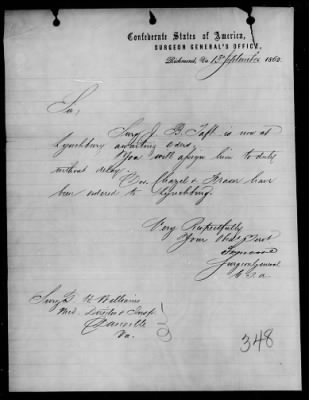 Confederate States of America,
SURGEON GENERAL'S OFFICE,
Richmond, Va. 18 September 1862.
Sir,
Surg J. B. Taft is now at
Lynchburg awaiting orders,
You will assign him to duty
without delay.
Drs. & Fraser have
been ordered to Lynchburg.
Very Respectfully
Your Obdt Servt
Surgeon General
C.S.A.
Surg W Williams
Med. Director & Insp
Danville
Va.
348